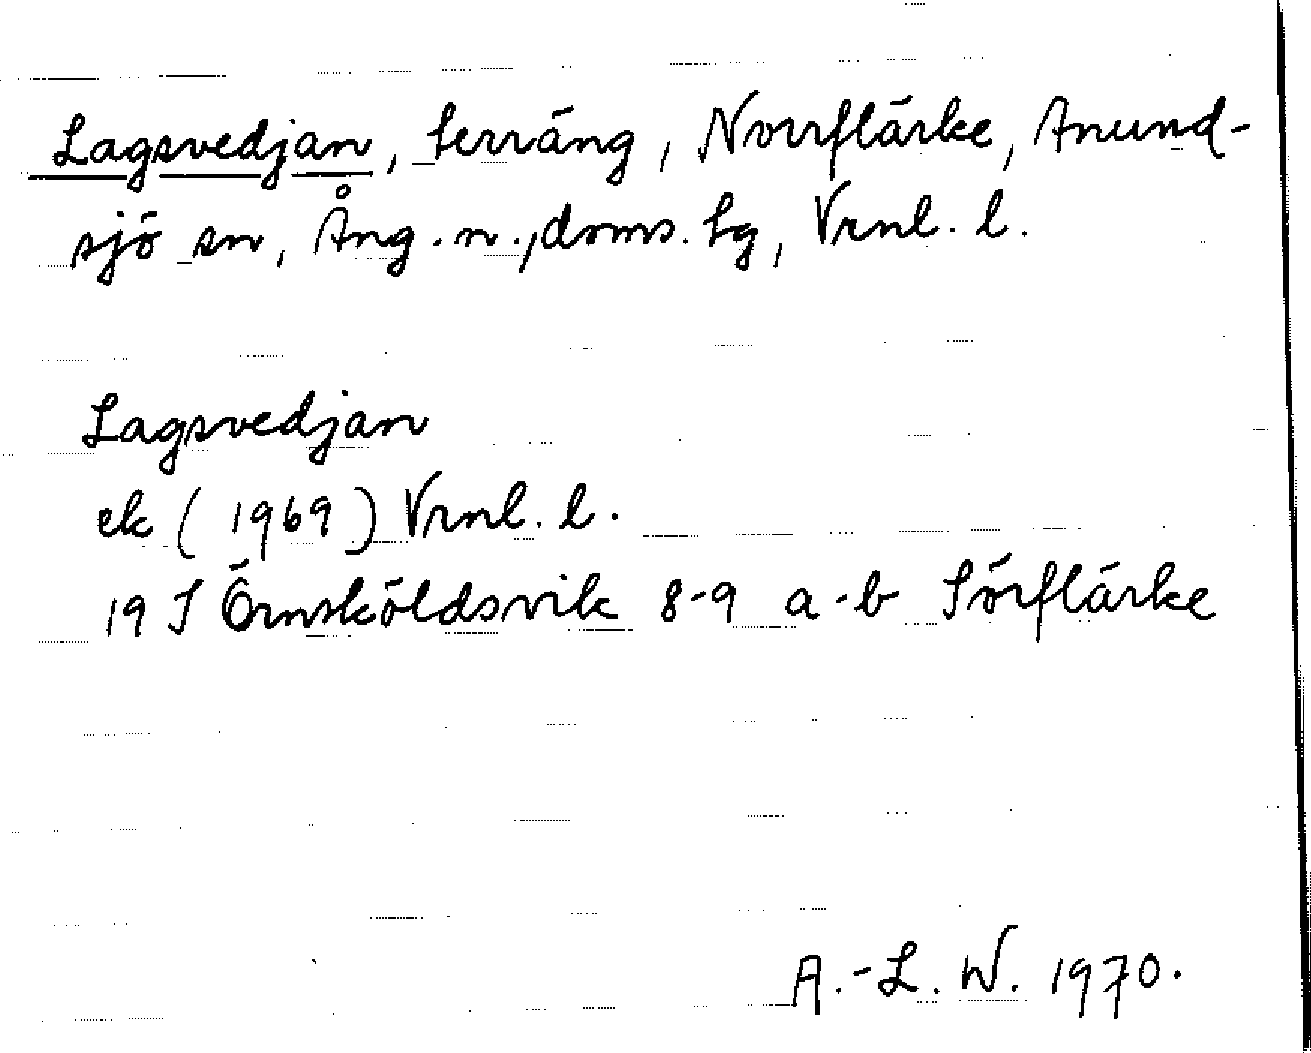 Lagsvedjan, terräng, Norrflärke, Anund-
sjö sn, Ång. n., doms. tg, Vrnl. l.
Lagsvedjan
ek (1969) Vrnl. l.
19 J Örnsköldsvik 8-9 a-b Sörflärke
A.-L. W. 1970.